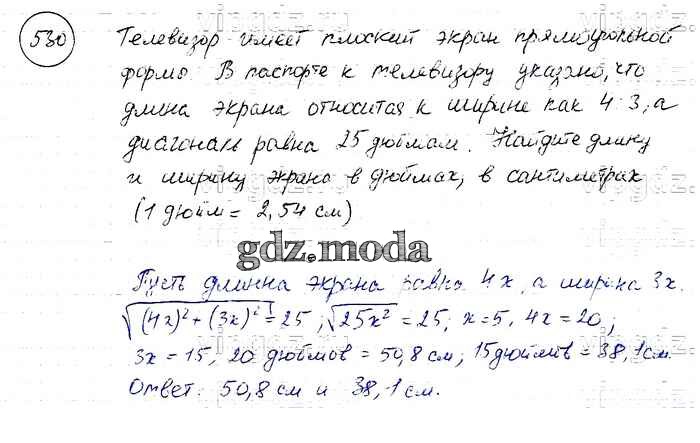 530 Телевизор имеет плоский экран прямоугольной
форме. В паспорте к телевизору указано, что
длина экрана относится к ширине как 4:3, а
диагональ равна 25 дюймам. Найдите длину
и ширину экрана в дюймах, в сантиметрах
(1 дюйм = 2,54 см)
gdz.moda
Пусть длинна экрана равна 4x, а ширина 3x.
√(4x)² + (3x)² = 25; √25x² = 25; x=5, 4x=20;
3x=15, 20 дюймов = 50,8 см; 15 дюймов = 38,1 см.
Ответ: 50,8 см и 38,1 см.